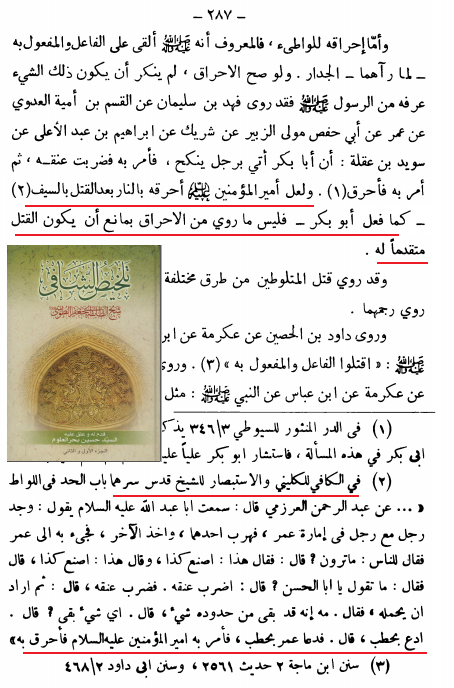 – ٢٨٧ –
وأمّا إحراقه للواطىء ، فالمعروف أنه ﷺ ألقى على الفاعل والمفعول به
ـ لما رآهما ـ الجدار . ولو صح الاحراق ، لم ينكر أن يكون ذلك الشيء
عرفه من الرسول ﷺ فقد روى فهد بن سليمان عن القسم بن أمية العدوي
عن عمر عن أبي حفص مولى الزبير عن شريك عن ابراهيم بن عبد الأعلى عن
سويد بن غفلة : أن أبا بكر أتي برجل ينكح ، فأمر به فضربت عنقـه ، ثم
أمر به فأحرق (١) . ولعل أمير المؤمنين عليه السلام أحرقه بالنار بعد القتل بالسيف (٢)
ـ كما فعل أبو بكر ـ فليس ما روي من الاحراق بمانع أن يكون القتل
متقدماً له .
وقد روي قتل المتلوطين من طرق مختلفة
روي رجمهما .
وروى داود بن الحصين عن عكرمة عن ابر
ﷺ : « اقتلوا الفاعل والمفعول به » (٣) . وروى
عن عكرمة عن ابن عباس عن النبي ﷺ : مثل
تلخيص الشافي
قدم له و علق عليه
السيد حسين بحر العلوم
الجزء الأول و الثاني
(١) في الدر المنثور للسيوطي ٣/٣٤٦ بذكر
ابى بكر في هذه المسألة ، فاستشار ابو بكر علياً عليـ
(٢) في الكافي للكليني والاستبصار للشيخ قدس سرهما باب الحد فى اللواط
« ... عن عبد الرحمن العرزمي قال : سمعت ابا عبد الله عليه السلام يقول : وجد
رجل مع رجل فى إمارة عمر ، فهرب احدهما ، واخذ الآخر ، فجىء به الى عمر
فقال للناس : ماترون ؟ قال : فقال هذا : اصنع كذا ، وقال هذا : اصنع كذا ، قال
فقال : ما تقول يا ابا الحسن ؟ قال : اضرب عنقه . فضرب عنقه ، قال : ثم اراد
ان يحمله ، فقال . مه إنه قد بقى من حدوده شيء ، قال . اي شيء بقى ؟ قال .
ادع بحطب ، قال . فدعا عمر بحطب ، فأمر به امير المؤمنين عليه السلام فأحرق به»
(٣) سنن ابن ماجة ٢ حديث ٢٥٦١ ، وسنن ابى داود ٢/٤٦٨